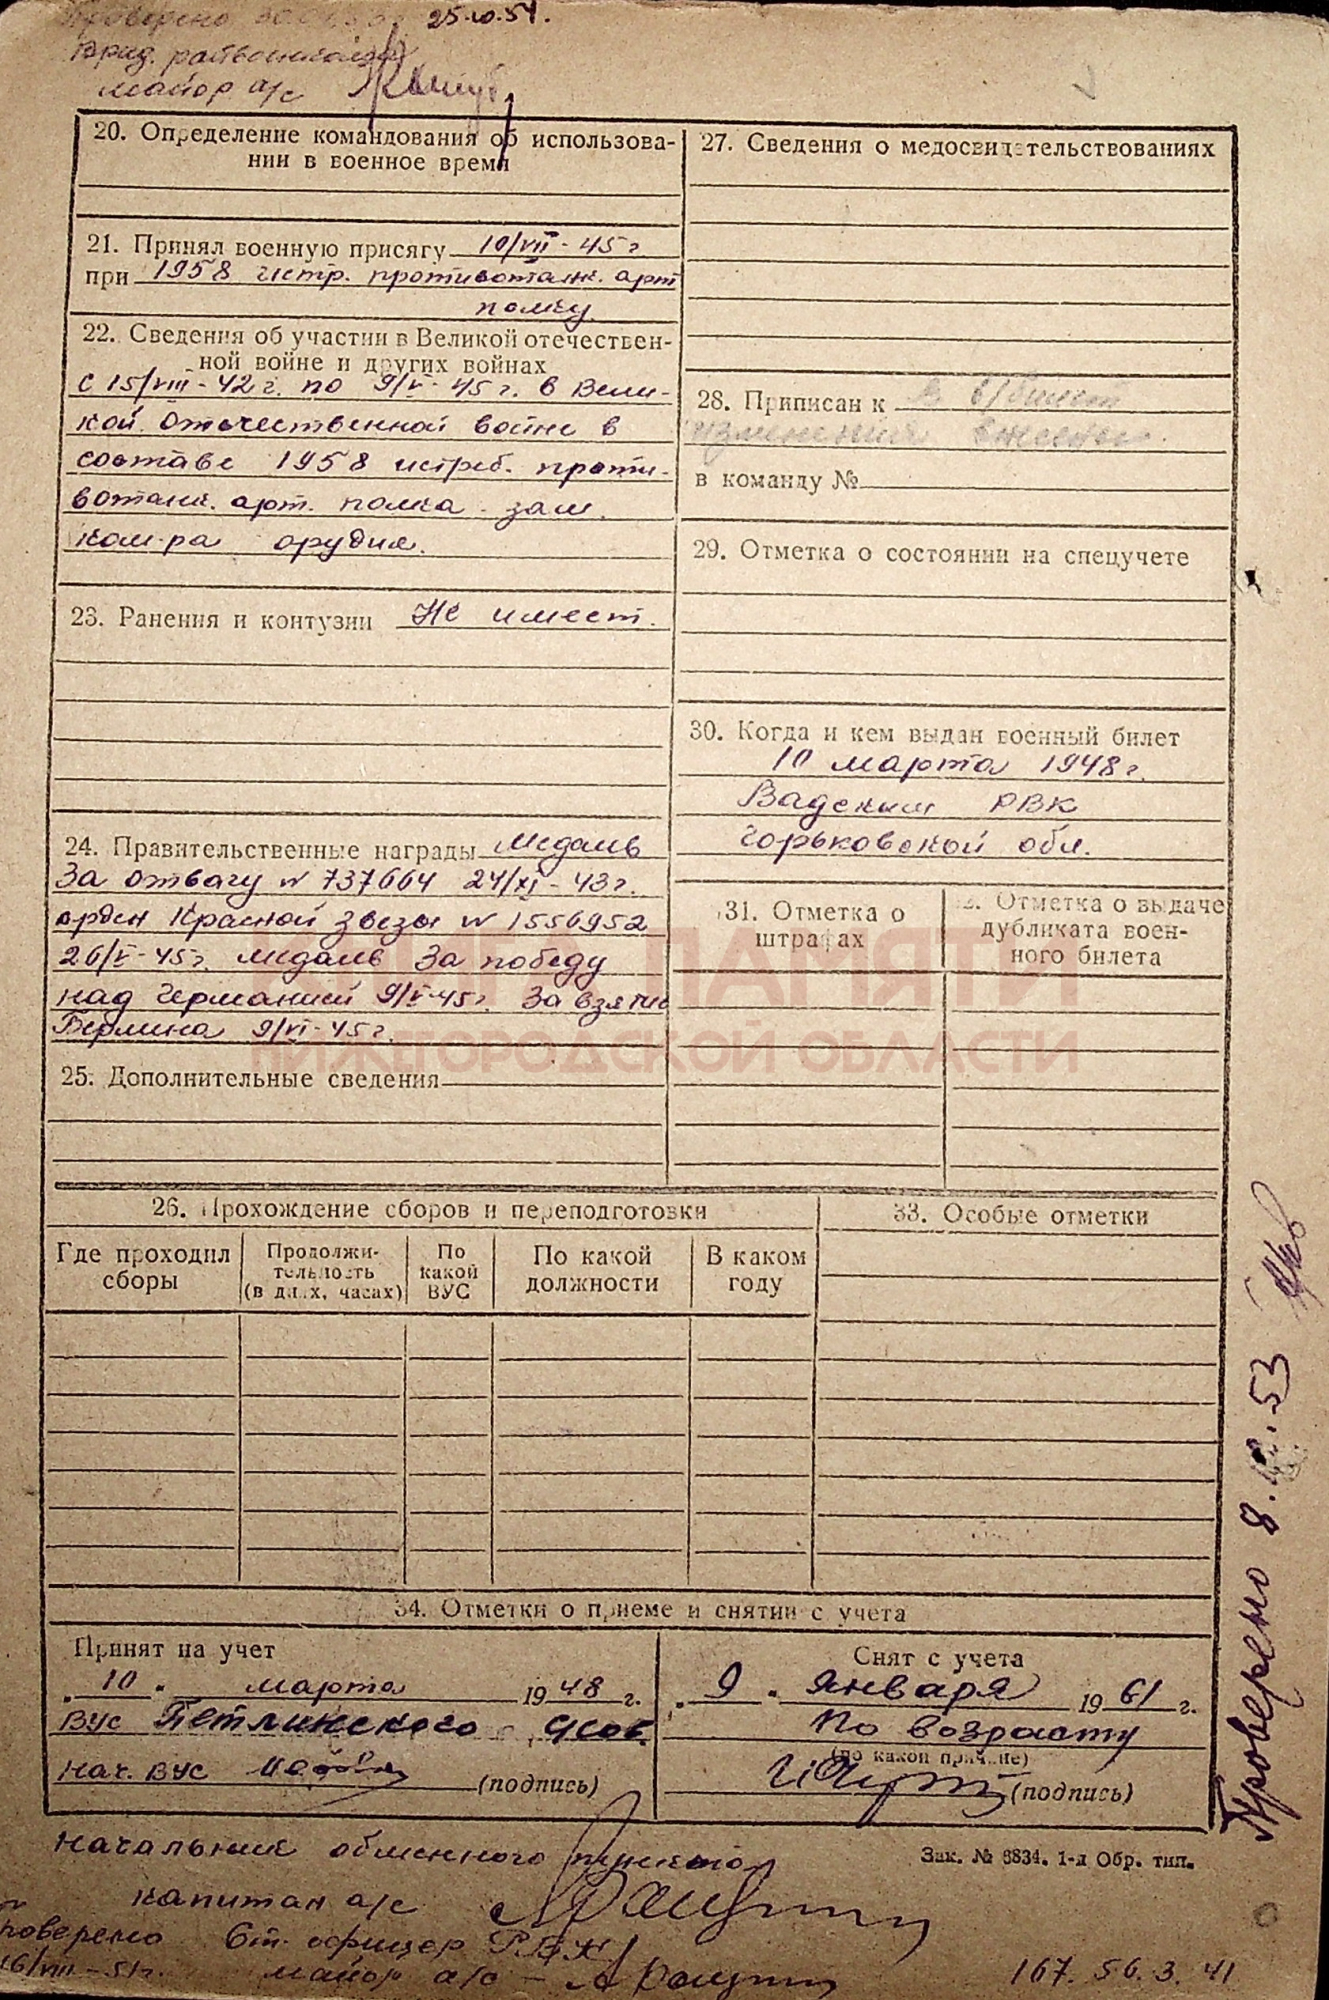 Проверено
25.10.51.
Врид. райвоенкома
майор а/с
20. Определение командования об использова-
нии в военное время
21. Принял военную присягу 10/VII-45г
при 1958 истр. противотанк. арт
полку
22. Сведения об участии в Великой отечествен-
ной войне и других войнах
с 15/VIII-42г. по 9/V-45г. в Вели-
кой Отечественной войне в
составе 1958 истреб. проти-
вотанк. арт. полка зам.
ком-ра орудия.
23. Ранения и контузии Не имеет.
24. Правительственные награды Медаль
За отвагу № 737664 24/XI-43г.
орден Красной Звезды № 1556952
26/V-45г. медаль За победу
над Германией 9/V-45г. За взятие
Берлина 9/VI-45г.
25. Дополнительные сведения
26. Прохождение сборов и переподготовки
Где проходил сборы
Продолжи-
тельность
(в днях, часах)
По
какой
ВУС
По какой
должности
В каком
году
27. Сведения о медосвидетельствованиях
28. Приписан к в в/билет
изменения внесены.
в команду №
29. Отметка о состоянии на спецучете
30. Когда и кем выдан военный билет
10 марта 1948г.
Вадским РВК
Горьковской обл.
31. Отметка о
штрафах
32. Отметка о выдаче
дубликата воен-
ного билета
33. Особые отметки
КНИГА ПАМЯТИ
НИЖЕГОРОДСКОЙ ОБЛАСТИ
34. Отметки о приеме и снятии с учета
Принят на учет
„ 10 " марта 1948 г.
ВУС Петлинского с/сов.
Нач. ВУС (подпись)
Снят с учета
„ 9 " января 1961 г.
По возрасту
(по какой причине)
(подпись)
Начальник обменного пункта
капитан а/с
Зак. № 6834. 1-я Обр. тип.
Проверено Ст. офицер РВК
16/VIII-51г. майор а/с -
167. 56. 3. 41
Проверено 8. 53